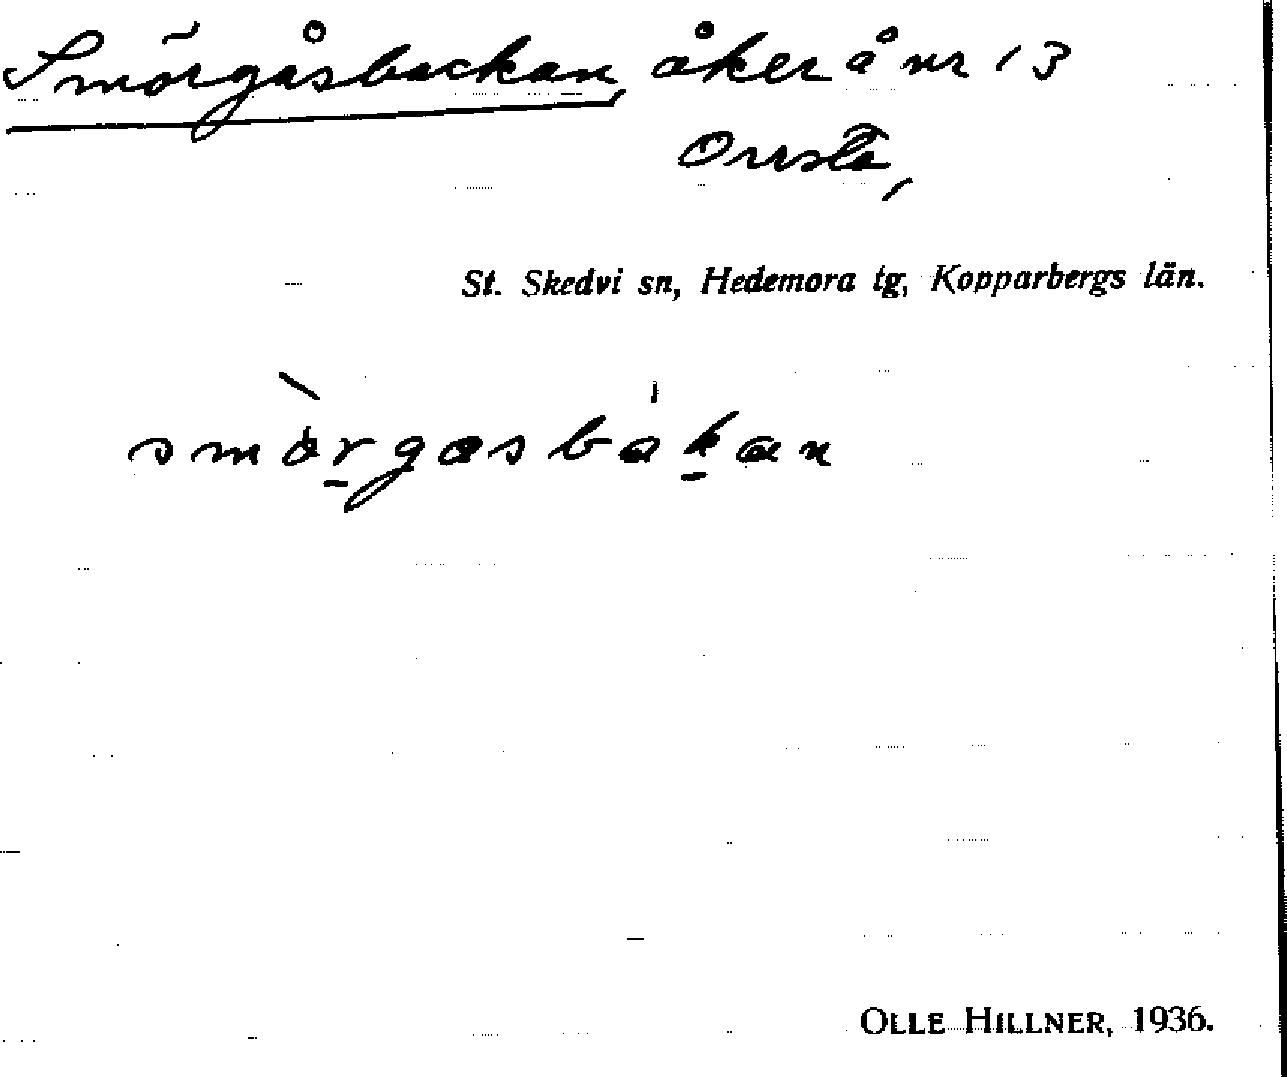 Smörgåsbackan, åker å nr 13
Orrsta,
St. Skedvi sn, Hedemora tg, Kopparbergs län.
smòrgasbakan
OLLE HILLNER, 1936.